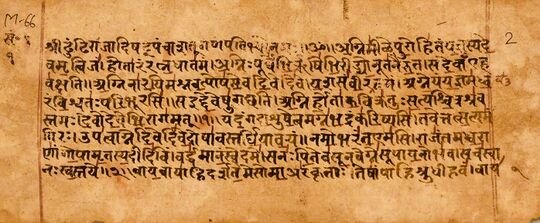 M-66
सं॰ ६
१
2
श्रीढुंढिराजादिषट्पंचाशद्गणपतिभ्योनमः॥ॐ॥अग्निमीळेपुरोहितंयज्ञस्यदे
वमृत्विजं॥होतारंरत्नधातमं॥अग्निःपूर्वेभिर्ऋषिभिरीड्योनूतनैरुत॥सदेवाँएह
वक्षति॥अग्निनारयिमश्नवत्पोषमेवदिवेदिवे॥यशसंवीरवत्तमं॥अग्नेयंयज्ञमध्व
रंविश्वतःपरिभूरसि॥सइद्देवेषुगच्छति॥अग्निर्होताकविक्रतुःसत्यश्चित्रश्रव
स्तमः॥देवोदेवेभिरागमत्॥१॥यदंगदाशुषेत्वमग्नेभद्रंकरिष्यसि॥तवेत्तत्सत्यमं
गिरः॥उपत्वाग्नेदिवेदिवेदोषावस्तर्धियावयं॥नमोभरंतएमसि॥राजंतमध्वरा
णांगोपामृतस्यदीदिविं॥वर्द्धमानंस्वेदमे॥सनःपितेवसूनवेग्नेसूपायनोभव॥सचस्वा
नःस्वस्तये॥२॥वायवायाहिदर्शतेमेसोमाअरंकृताः॥तेषांपाहिश्रुधीहवं॥वाय